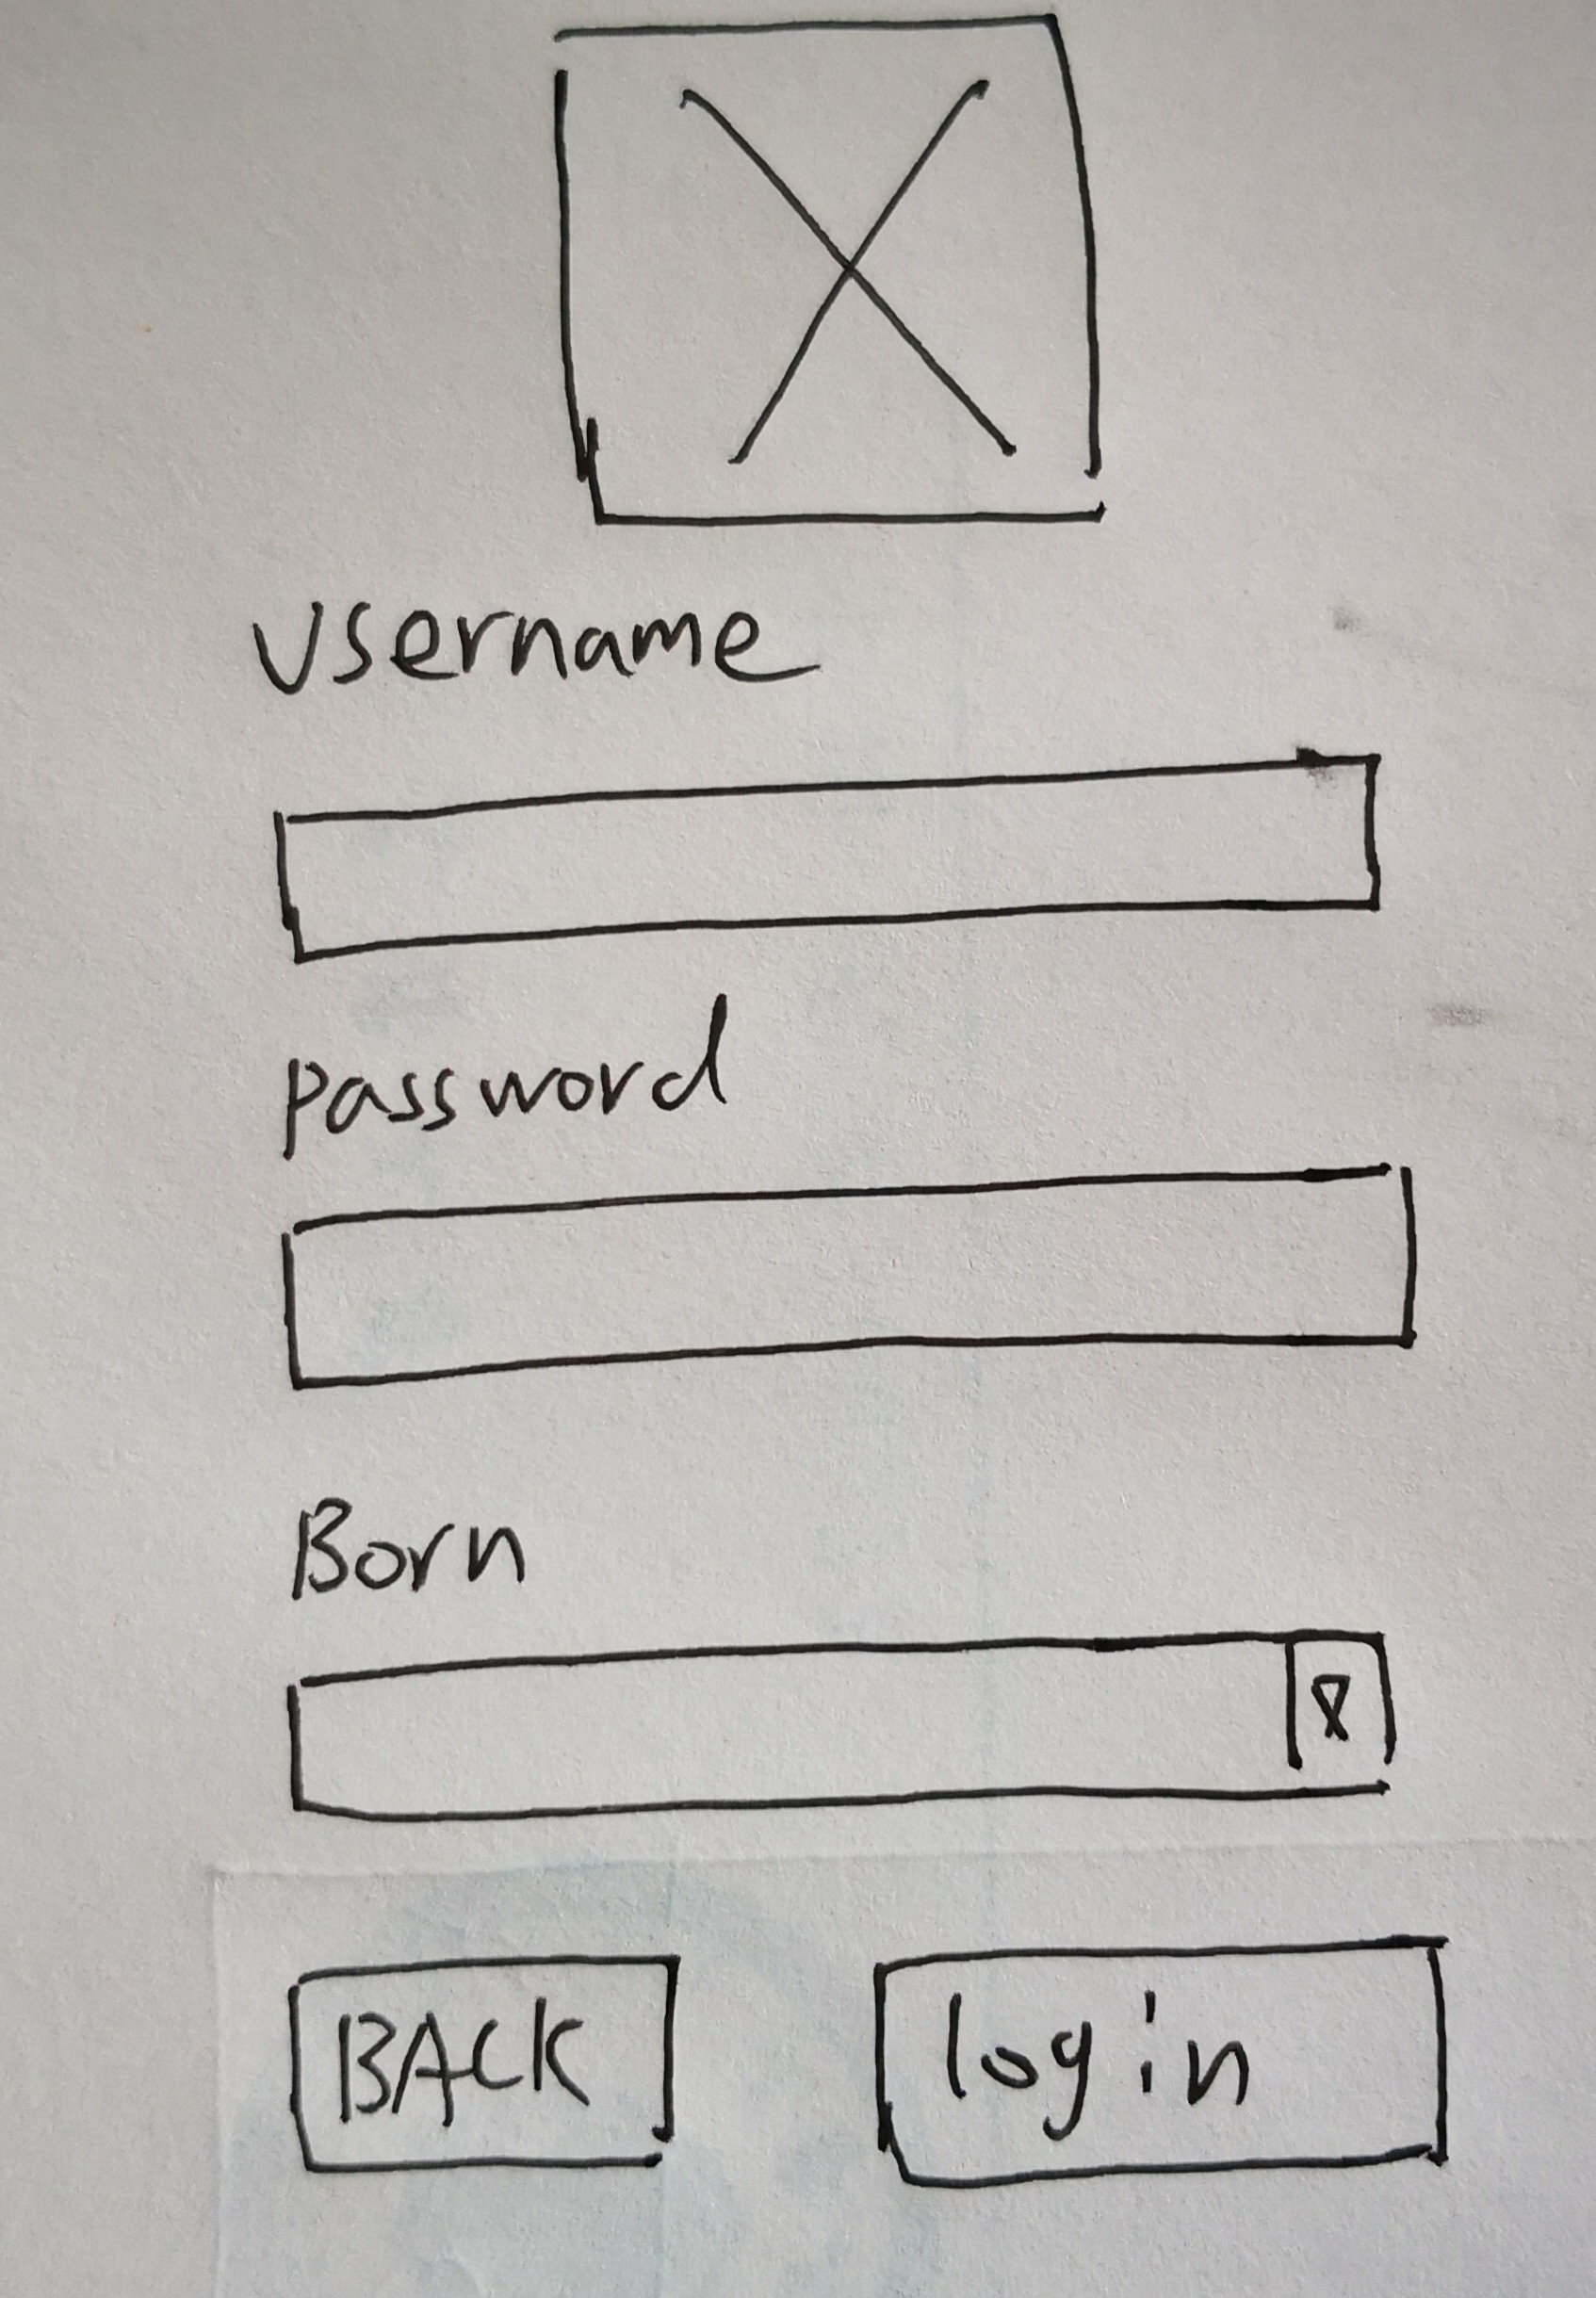 Username
password
Born
BACK
login